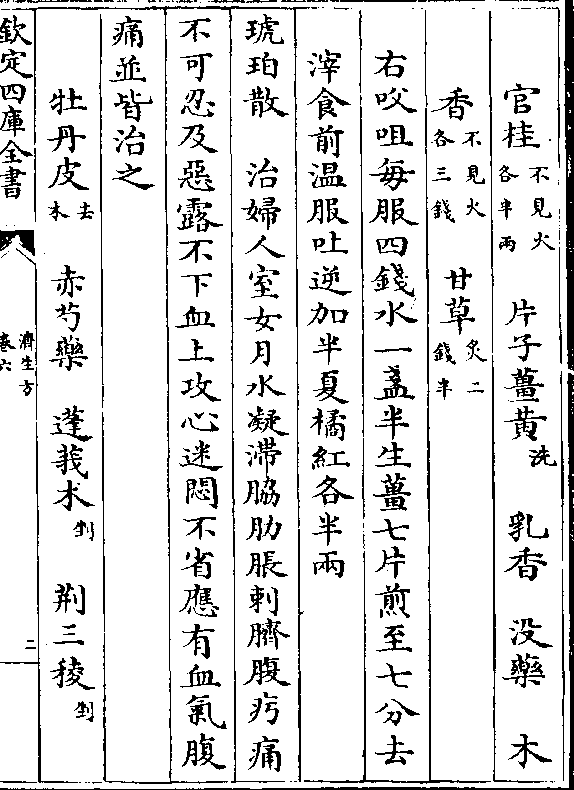 官桂不見火各半兩 片子薑黄洗 乳香 没藥 木
香不見火各三錢 甘草炙二錢半
右㕮咀每服四錢水一盞半生薑七片煎至七分去
滓食前温服吐逆加半夏橘紅各半兩
琥珀散 治婦人室女月水凝滯脇肋脹刺臍腹㽲痛
不可忍及惡露不下血上攻心迷悶不省應有血氣腹
痛並皆治之
牡丹皮去木 赤芍藥 蓬莪朮剉 荆三稜剉
欽定四庫全書
濟生方
卷六
二